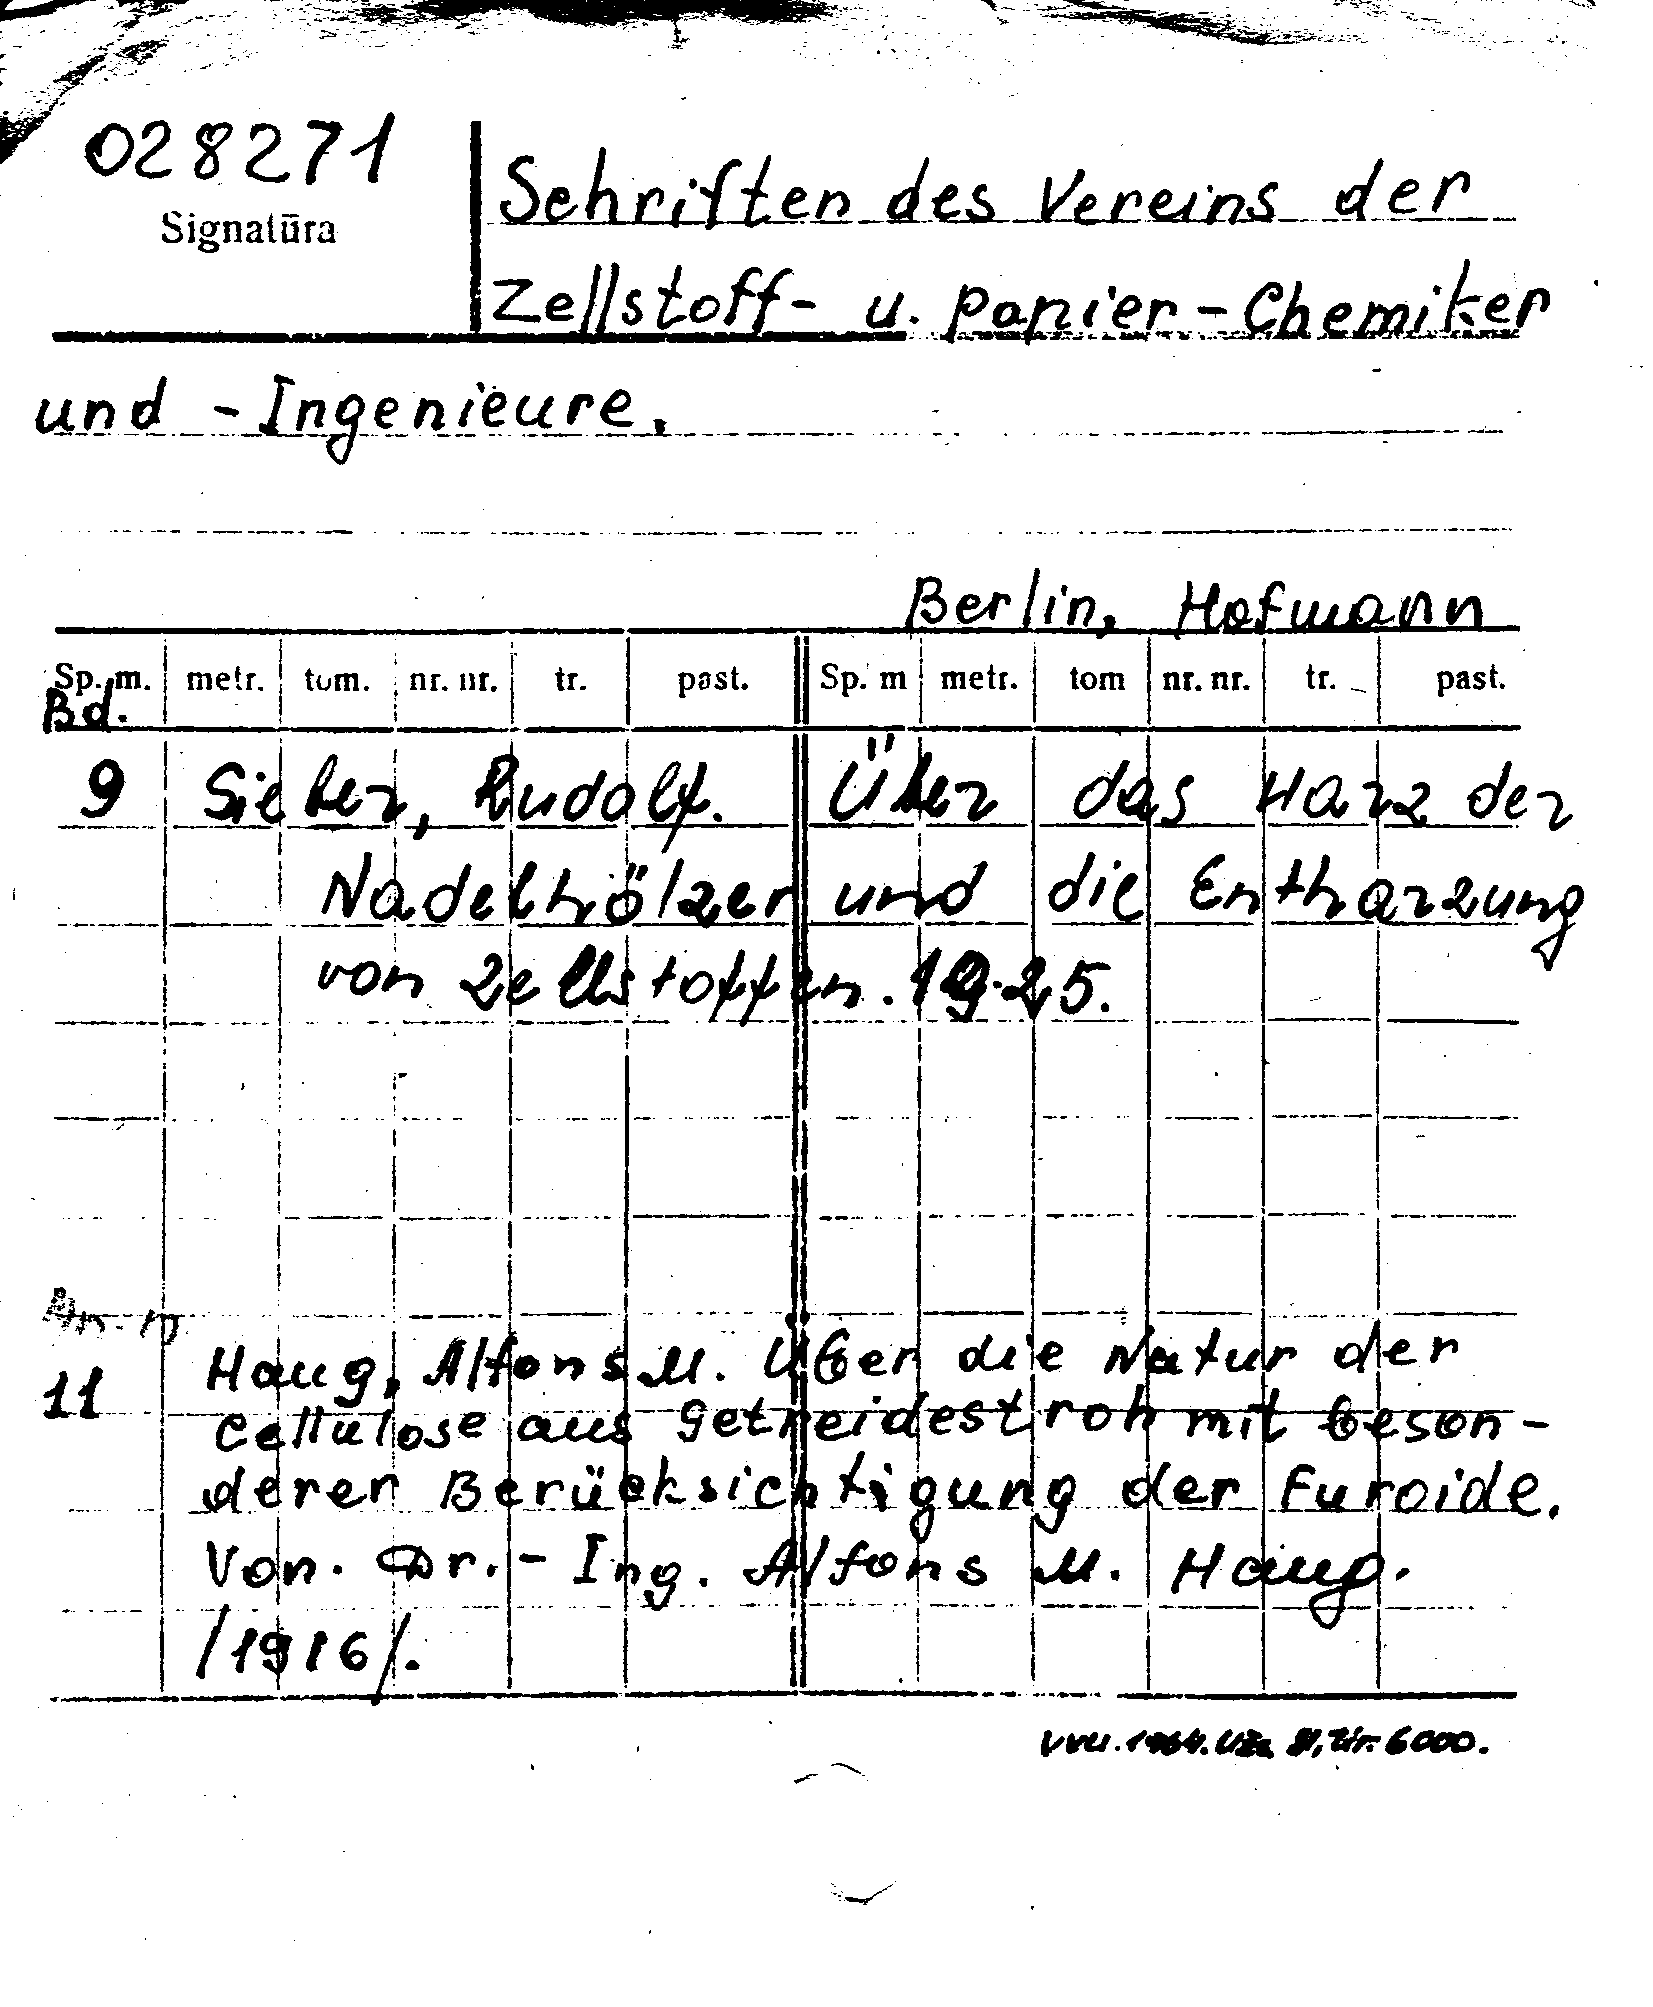 028271
Signatūra
Schriften des Vereins der
Zellstoff- u. Papier-Chemiker
und -Ingenieure.
Berlin, Hofmann
Sp. m. metr. tom. nr. nr. tr. past. Sp. m metr. tom nr. nr. tr. past.
Bd.
9 Sieber, Rudolf. Über das Harz der
Nadelhölzer und die Entharzung
von Zellstoffen. 1925.
11 Haug, Alfons M. Über die Natur der
Cellulose aus Getreidestroh mit beson-
derer Berücksichtigung der Furoide.
Von. Dr.-Ing. Alfons M. Haug.
/1916/.
VVU. 1964. Užs. tir. 6000.